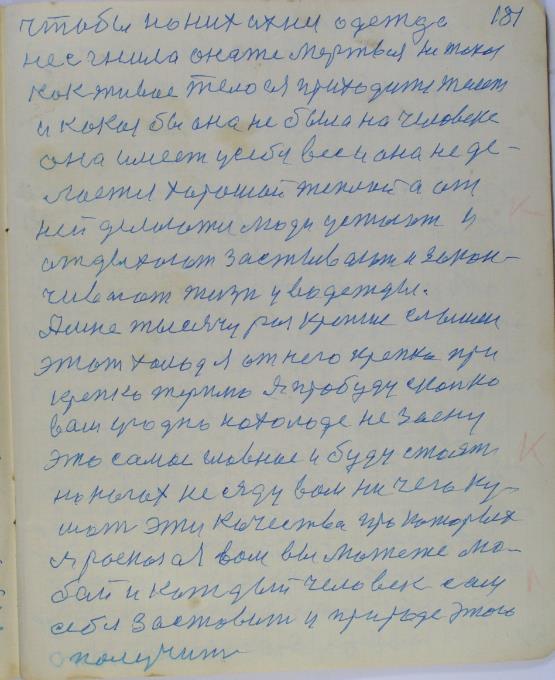 181
чтобы на них ихня одежда
несгнила она же мертвая не такая
как живое тело ея приходите жалет
и какая бы она не была на человеке
она имеет усебя вес и она неде-
лается хорошой теплой а от
ней делаются люди устают и
отдыхают застывают и закон-
чивают жизн у водежды.
А мне тысячу раз крепше слышен
этот холод я от него крепко при
крепко терплю Я пробуду сколко
вам угодно нахолоде не засну
это самое главное и буду стоят
на ногах не сяду вам ни чего ку-
шат эти качества про которых
я росказал вам вы можете лю-
бой и каждый человек сам
себя заставит и природе этого
получит
К